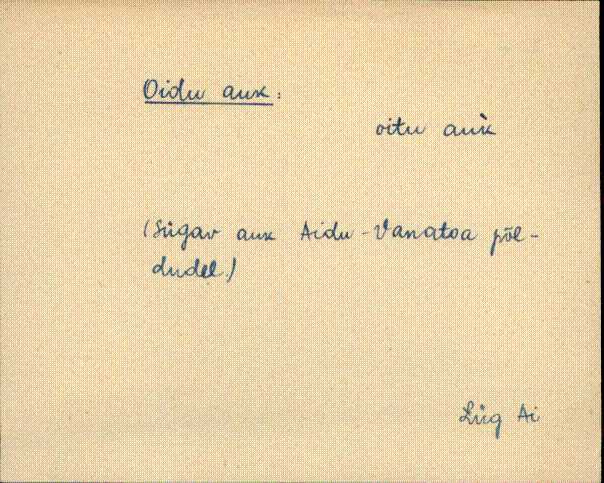 Oidu auk:
oitu auk̀
(Sügav auk Aidu-Vanatoa põl-
dudel.)
Lüg Ai